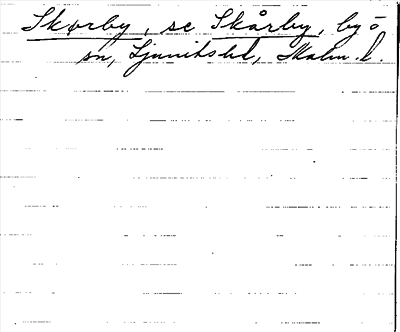 Skorby, se Skårby, by ö
sn, Ljunitshd, Malm. l.